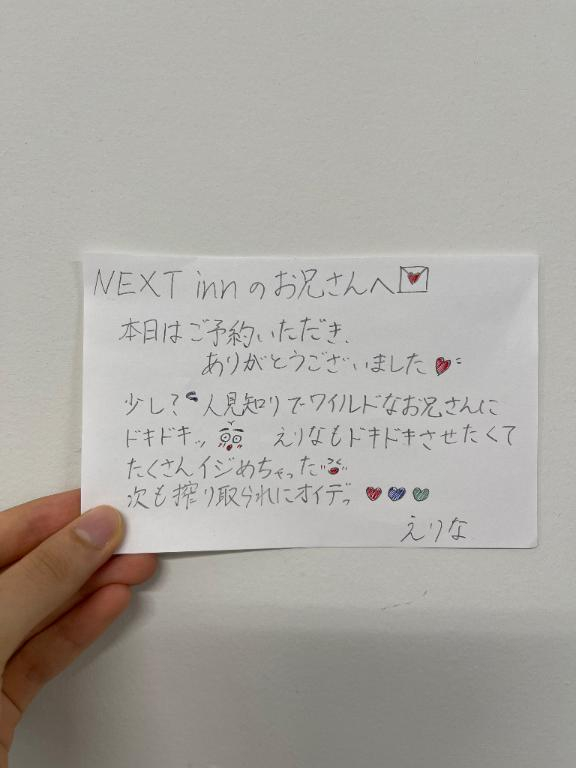 NEXT innのお兄さんへ
本日はご予約いただき、
ありがとうございました
少し？人見知りでワイルドなお兄さんに
ドキドキッ えりなもドキドキさせたくて
たくさんイジめちゃった
次も搾り取られにオイデっ
えりな